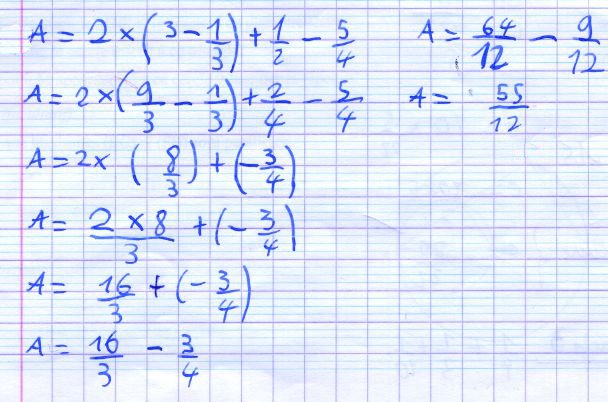 A = 2 × (3 - 1/3) + 1/2 - 5/4
A = 2 × (9/3 - 1/3) + 2/4 - 5/4
A = 2 × (8/3) + (-3/4)
A = (2 × 8)/3 + (-3/4)
A = 16/3 + (-3/4)
A = 16/3 - 3/4
A = 64/12 - 9/12
A = 55/12